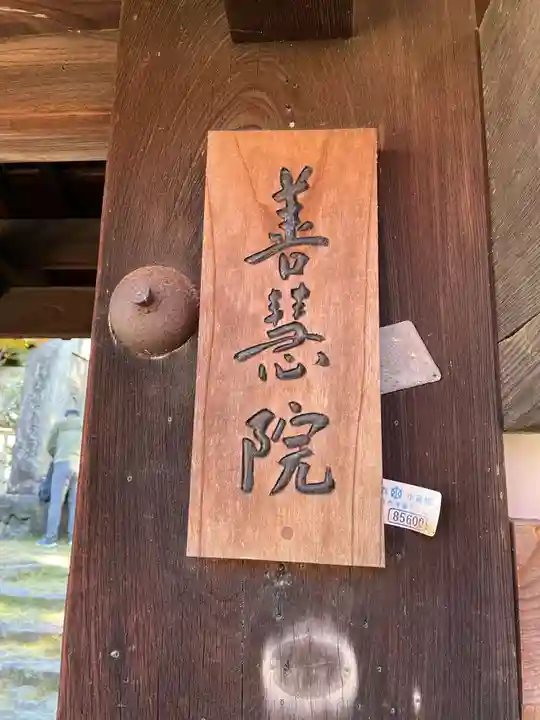 善慧院
85600